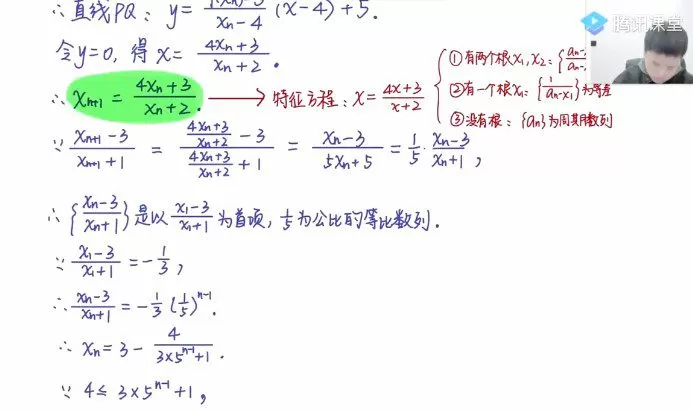 ∴直线PQ: y= xn-4 (x-4)+5.
腾讯课堂
令y=0, 得 x= (4xn+3)/(xn+2).
①有两个根x1,x2: {an-
an-
∴ xn+1 = (4xn+3)/(xn+2). → 特征方程: x=(4x+3)/(x+2)
②有一个根x1: {1/(an-x1)}为等差
③没有根: {an}为周期数列
∵ (xn+1-3)/(xn+1+1) = ((4xn+3)/(xn+2) -3)/((4xn+3)/(xn+2) +1) = (xn-3)/(5xn+5) = 1/5·(xn-3)/(xn+1),
∴{(xn-3)/(xn+1)}是以(x1-3)/(x1+1)为首项, 1/5为公比的等比数列.
∵ (x1-3)/(x1+1) = -1/3,
∴ (xn-3)/(xn+1) = -1/3 (1/5)^(n-1).
∴ xn=3- 4/(3×5^(n-1)+1).
∵ 4≤ 3×5^(n-1)+1,